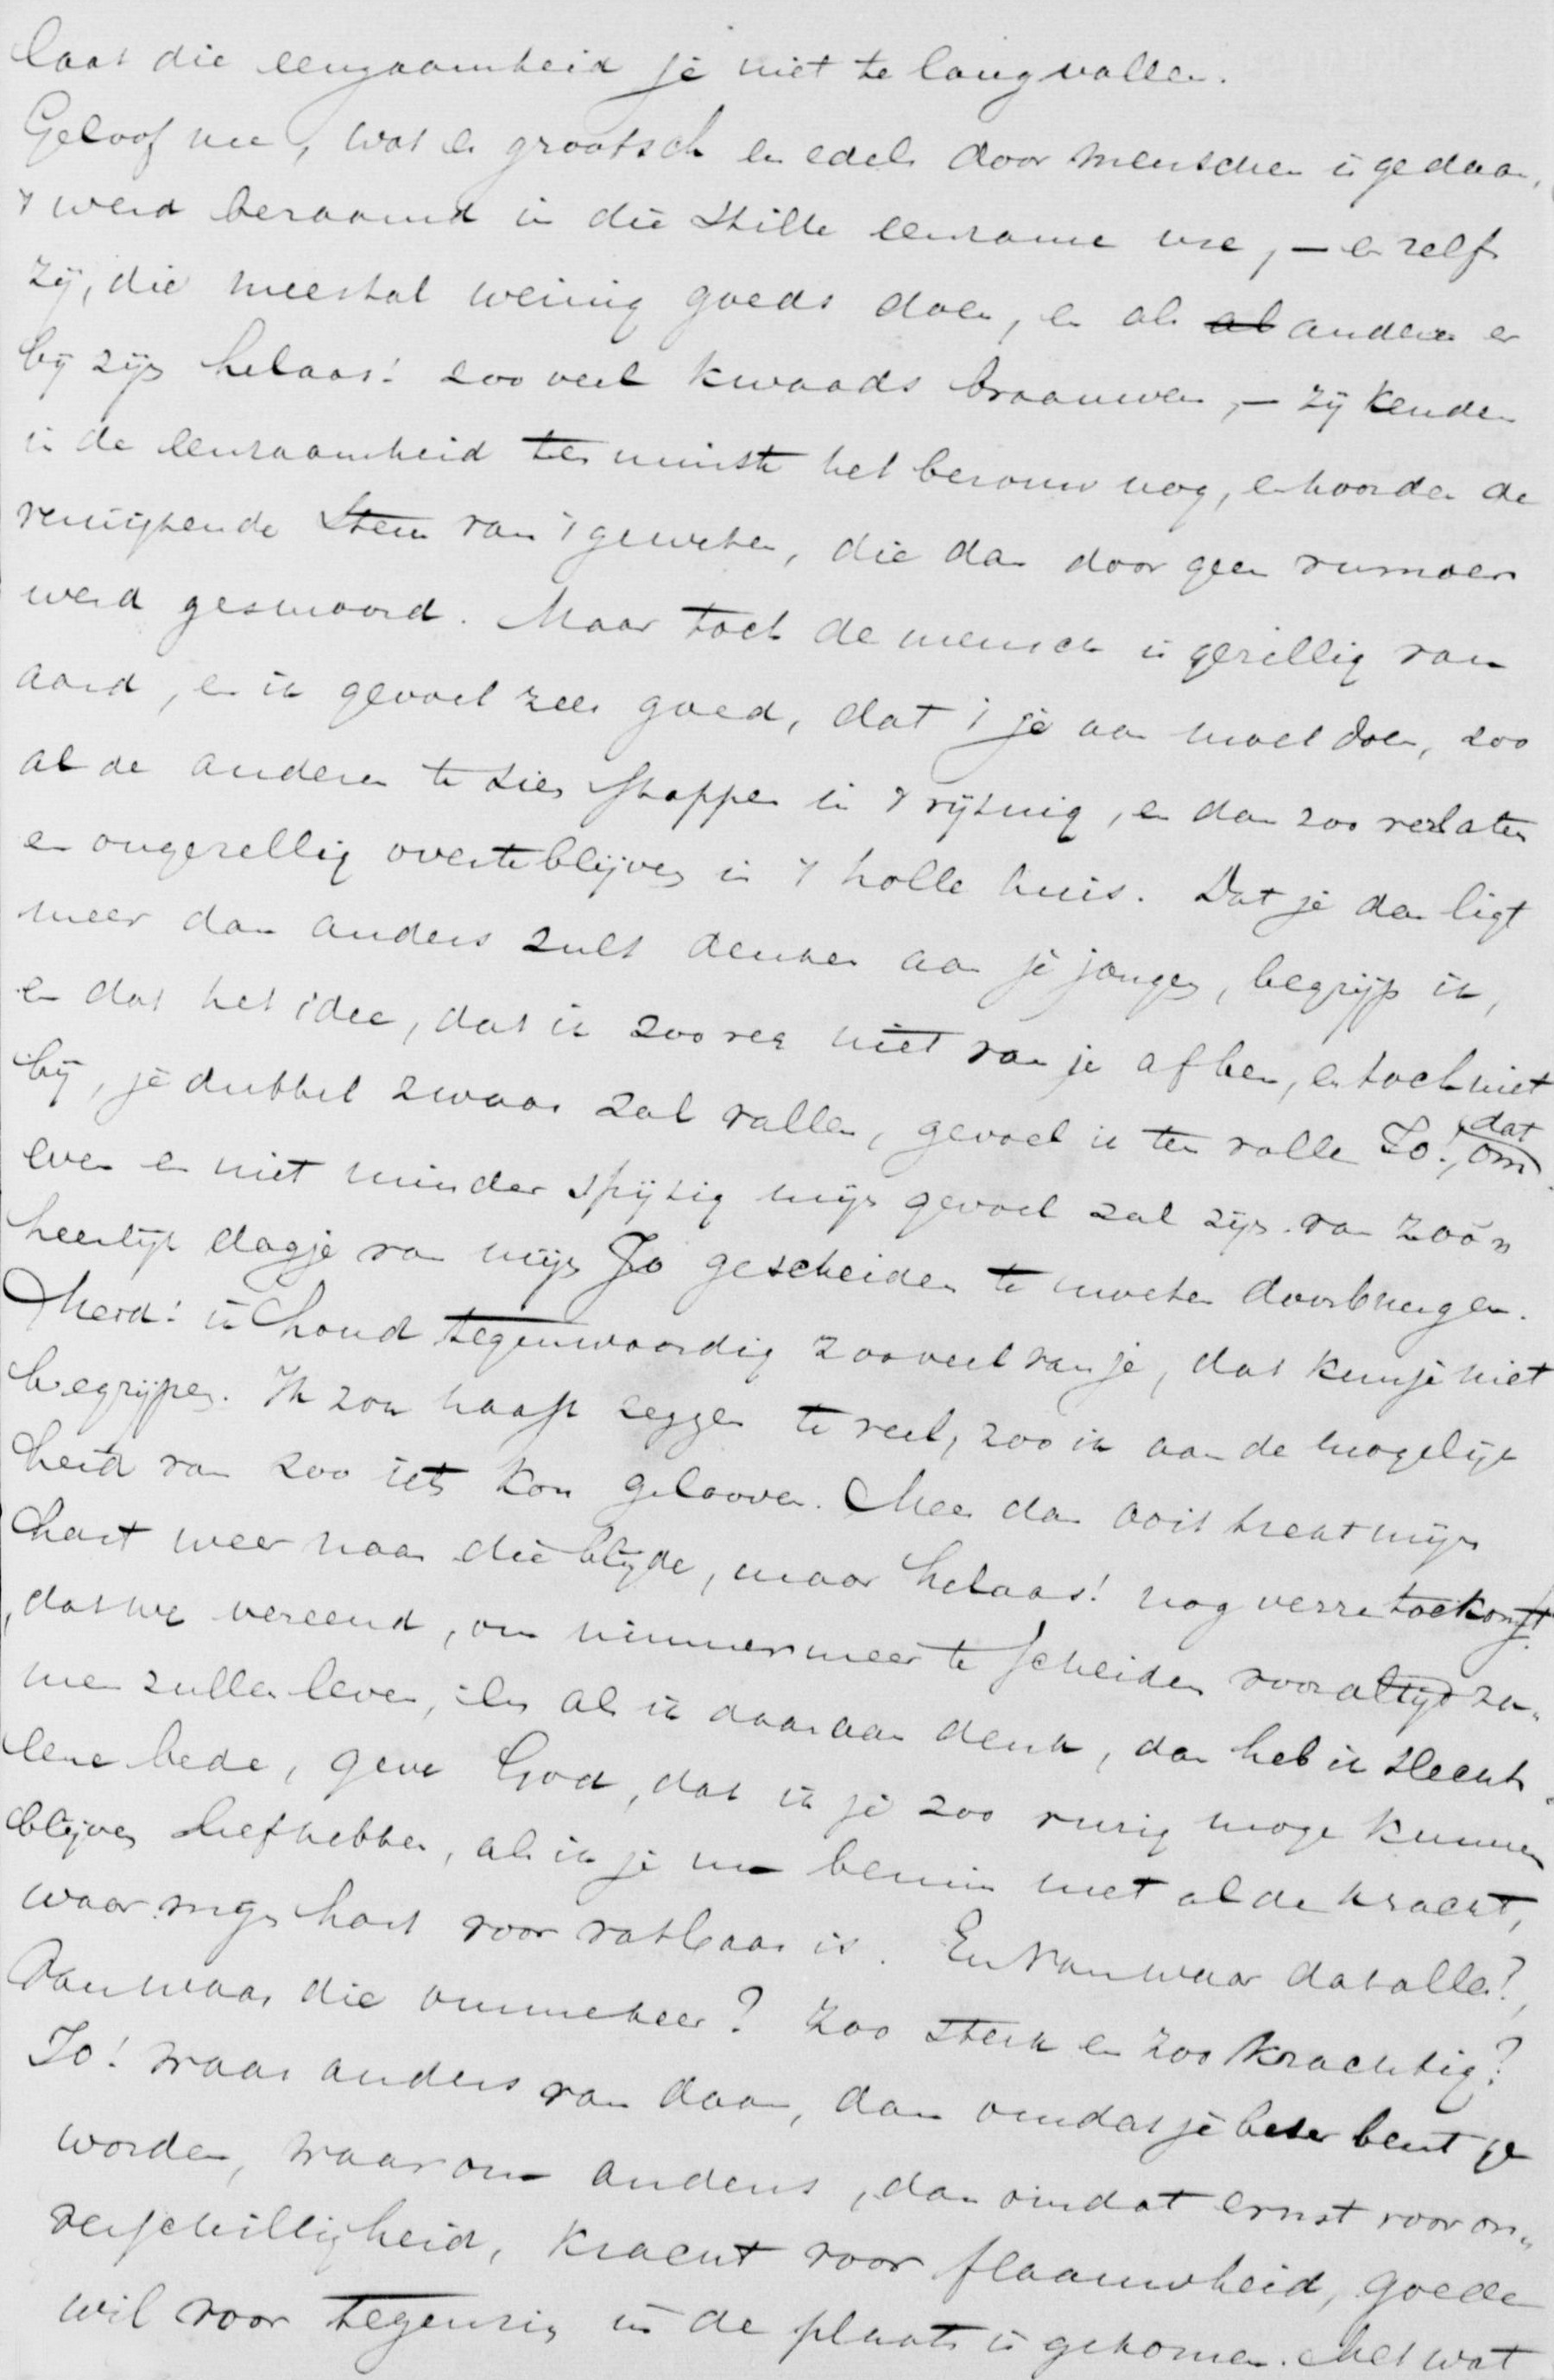 laat die eenzaamheid je niet te lang vallen.
Geloof me, wat er grootsch en edels door menschen is gedaan,
't werd beraamd in die stille eenzame ure, – en zelfs
zij, die meestal weinig goeds doen, en als al anderen er
bij zijn helaas! zoo veel kwaads braauwen, – zij kenden
in de eenzaamheid ten minste het berouw nog, en hoorden de
vernijtende stem van 't geweten, die dan door geen rumoer
werd gesmoord. Maar toch de mensch is gezellig van
aard, en ik gevoel zeer goed, dat 't je aan moet doen, zoo
al de anderen te zien stappen in 't rijtuig, en dan zoo verlaten
en ongezellig overteblijven in 't holle huis. Dat je dan ligt
meer dan anders zult denken aan je jongen, begrijp ik,
en dat het idee, dat ik zoo ver niet van je af ben, en toch niet
bij, je dubbel zwaar zal vallen, gevoel ik ten volle Jo!, dat om
even en niet minder spijtig mijn gevoel zal zijn van zoo'n
heerlijk dagje van mijn Jo gescheiden te moeten doorbrengen.
Meid! ik houd tegenwoordig zooveel van je, dat kun je niet
begrijpen. Ik zou haast zeggen te veel, zoo ik aan de mogelijk
heid van zoo iets kon gelooven. Meer dan ooit trekt mijn
hart weer naar die blijde, maar helaas! nog verre toekomst,
dat we vereend, om nimmermeer te scheiden voor altijd za„
men zullen leven, en als ik daaraan denk, dan heb ik slechts
eene bede, geve God, dat ik je zoo vurig moge kunnen
blijven liefhebben, als ik je nu bemin met al de kracht,
waar mijn hart voor vatbaar is. En vanwaar dat alles?,
Vanwaar die ommekeer? Zoo sterk en zoo krachtig?
Jo! waar anders van daan, dan omdat je beter bent ge
worden, waarom anders, dan omdat ernst voor on„
verschilligheid, kracht voor flaauwheid, goede
wil voor tegenzin in de plaats is gekomen. Met wat